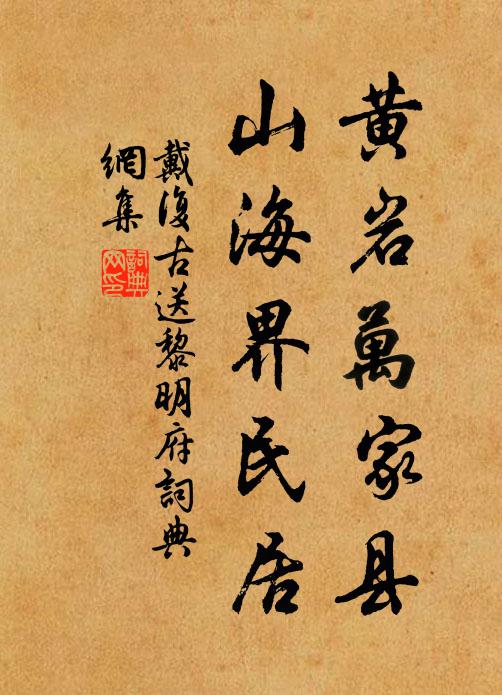 黄岩萬家县
山海界民居
戴復古送黎明府詞典
網集
詞典
网印